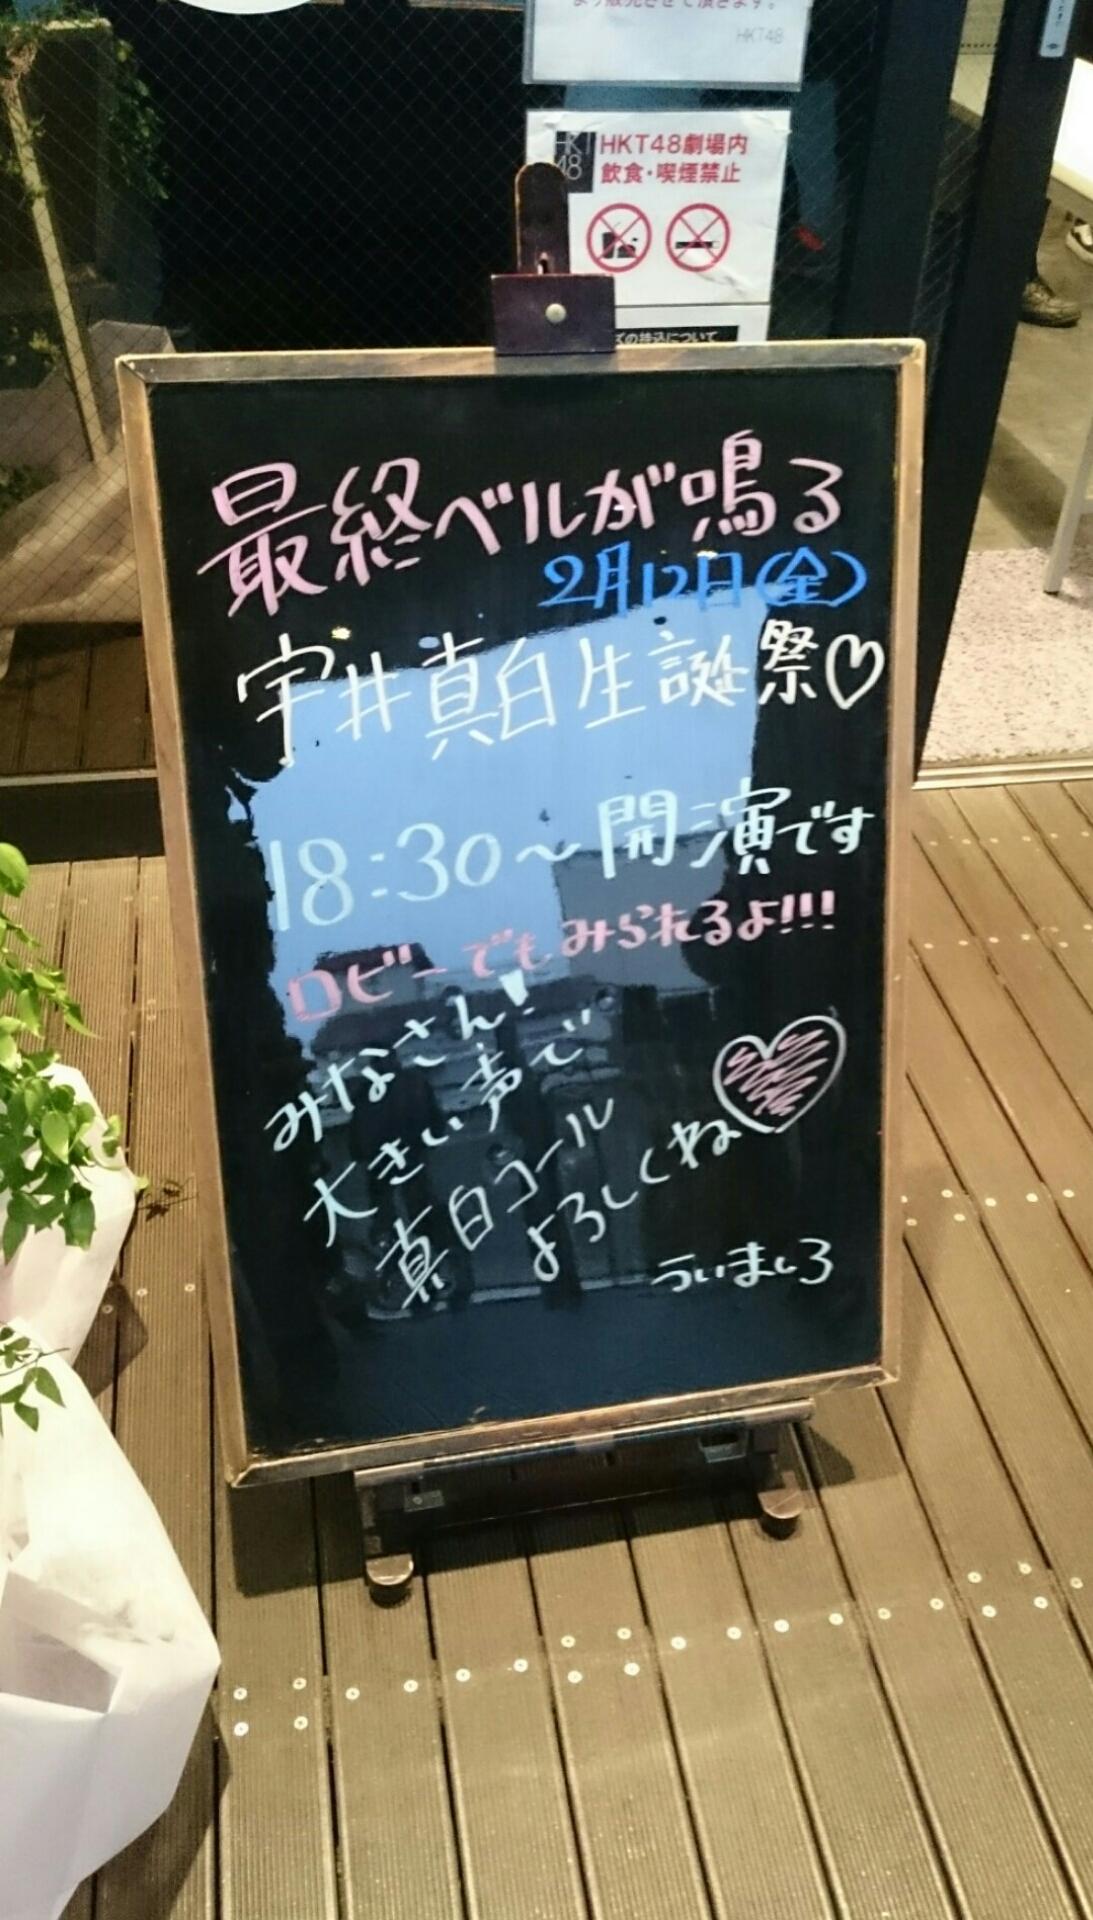 より販売させて頂きます。
HKT48
HKT48
HKT48劇場内
飲食・喫煙禁止
ズの持込について
最終ベルが鳴る
2月12日(金)
宇井真白生誕祭♡
18:30～開演です
ロビーでもみられるよ!!!
みなさん!
大きい声で
真白コール
よろしくね
ういましろ